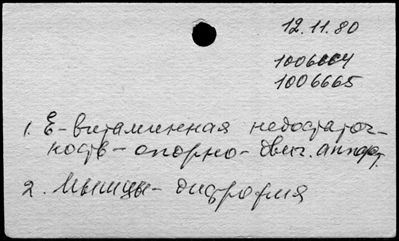 12.11.80
1006664
1006665
1. Е-витаминная недостаточ-
ность - опорно-двиг. аппарат.
2. Мышцы - дистрофия